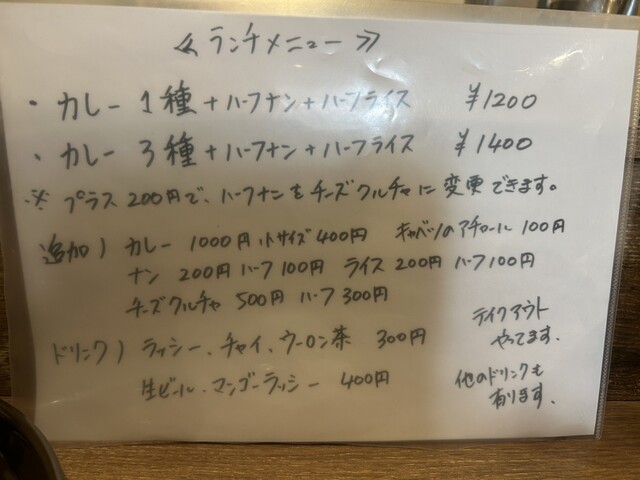 ≪ランチメニュー≫
・カレー 1種+ハーフナン+ハーフライス ¥1200
・カレー 3種+ハーフナン+ハーフライス ¥1400
※ プラス 200円で、ハーフナンをチーズクルチャに変更できます。
追加) カレー 1000円 小サイズ 400円 キャベツのアチョール 100円
ナン 200円 ハーフ 100円 ライス 200円 ハーフ 100円
チーズクルチャ 500円 ハーフ 300円
ドリンク) ラッシー、チャイ、ウーロン茶 300円
生ビール、マンゴーラッシー 400円
テイクアウト
やってます.
他のドリンクも
有ります.